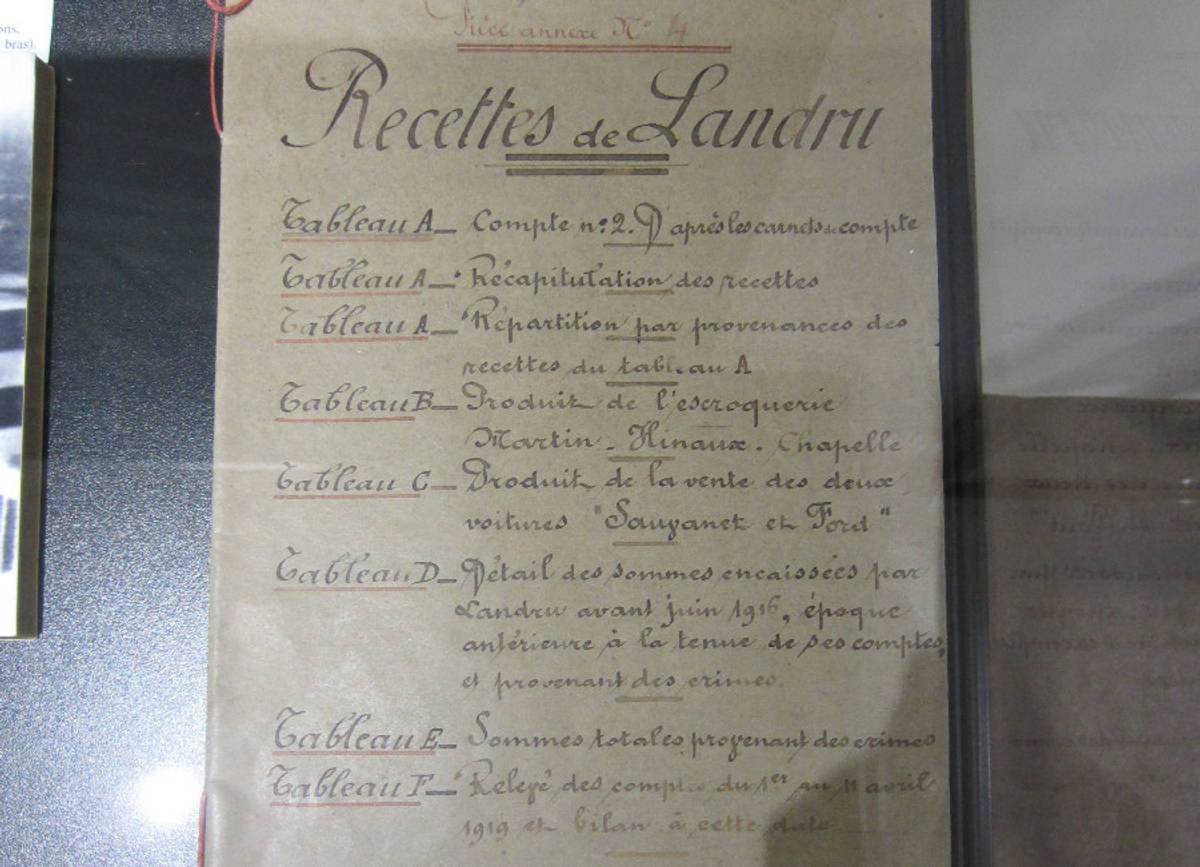 ons,
bras).
Pièce annexe Nº 4
Recettes de Landru
Tableau A_ Compte nº 2. D'après les carnets de compte
Tableau A_ Récapitulation des recettes
Tableau A_ Répartition par provenances des
recettes du tableau A
Tableau B_ Produit de l'escroquerie
Martin - Hinaux. Chapelle
Tableau C_ Produit de la vente des deux
voitures "Sauzanet et Ford"
Tableau D_ Détail des sommes encaissées par
Landru avant juin 1916, époque
antérieure à la tenue de ses comptes,
et provenant des crimes.
Tableau E_ Sommes totales provenant des crimes
Tableau F_ Relevé des comptes du 1er au 11 avril
1919 et bilan à cette date